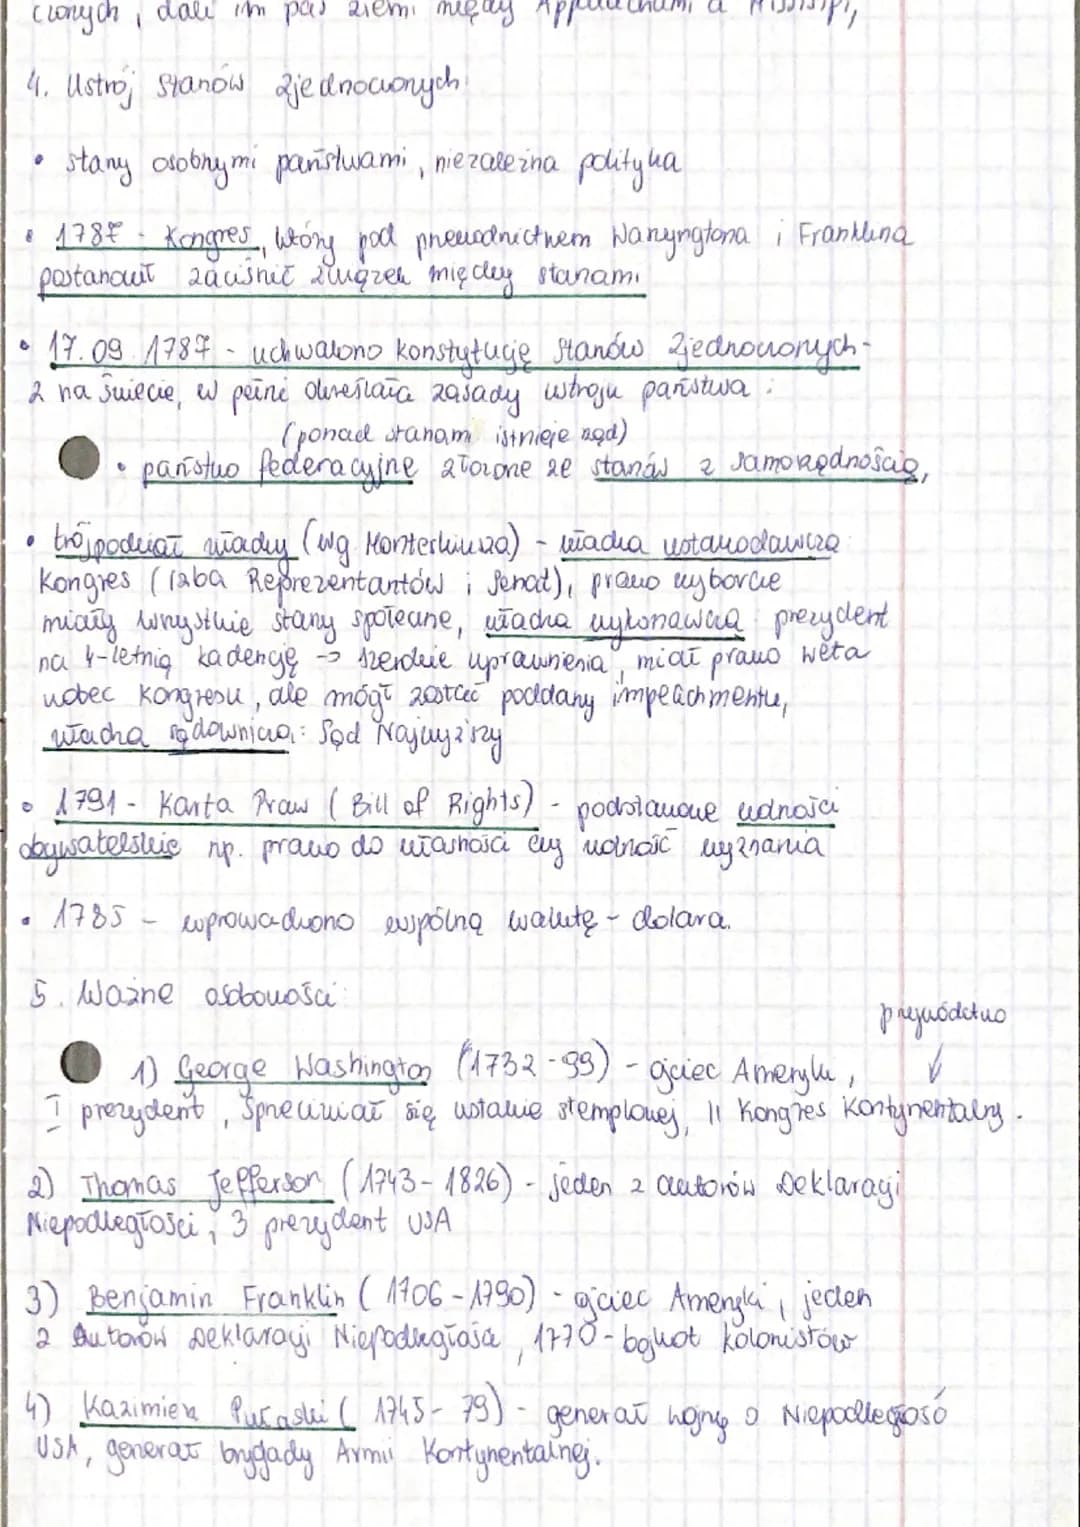 czonych, dali im pas ziemi między Appalachami a Missisipi,
4. Ustrój Stanów Zjednoczonych:
• stany osobnymi państwami, niezależna polityka
• 1787 - Kongres, który pod przewodnictwem Waszyngtona i Franklina
postanowił zacisnić związek między stanami
• 17.09.1787 - uchwalono konstytucję Stanów Zjednoczonych -
2 na świecie, w pełni określała zasady ustroju państwa:
(ponad stanami istnieje rząd)
• państwo federacyjne złożone ze stanów z samorządnością,
• trójpodział władzy (wg. Monteskiusza) - władza ustawodawcza:
Kongres (Izba Reprezentantów i Senat), prawo wyborcze
miały wszystkie stany społeczne, władza wykonawcza: prezydent
na 4-letnią kadencję -> szerokie uprawnienia, miał prawo weta
wobec Kongresu, ale mógł zostać poddany impeachmentu,
władza sądownicza: Sąd Najwyższy
• 1791 - Karta Praw (Bill of Rights) - podstawowe wolności
obywatelskie np. prawo do własności czy wolność wyznania
• 1785 - wprowadzono wspólną walutę - dolara.
5. Ważne osobowości:
przywództwo
↓
1) George Washington (1732-99) - ojciec Ameryki,
I prezydent, sprzeciwiał się ustawie stemplowej, II Kongres Kontynentalny.
2) Thomas Jefferson (1743-1826) - jeden z autorów Deklaracji
Niepodległości, 3 prezydent USA
3) Benjamin Franklin (1706-1790) - ojciec Ameryki, jeden
z Autorów Deklaracji Niepodległości, 1770 - bojkot kolonistów
4) Kazimierz Pułaski (1745-79) - generał wojny o Niepodległość
USA, generał brygady Armii Kontynentalnej.